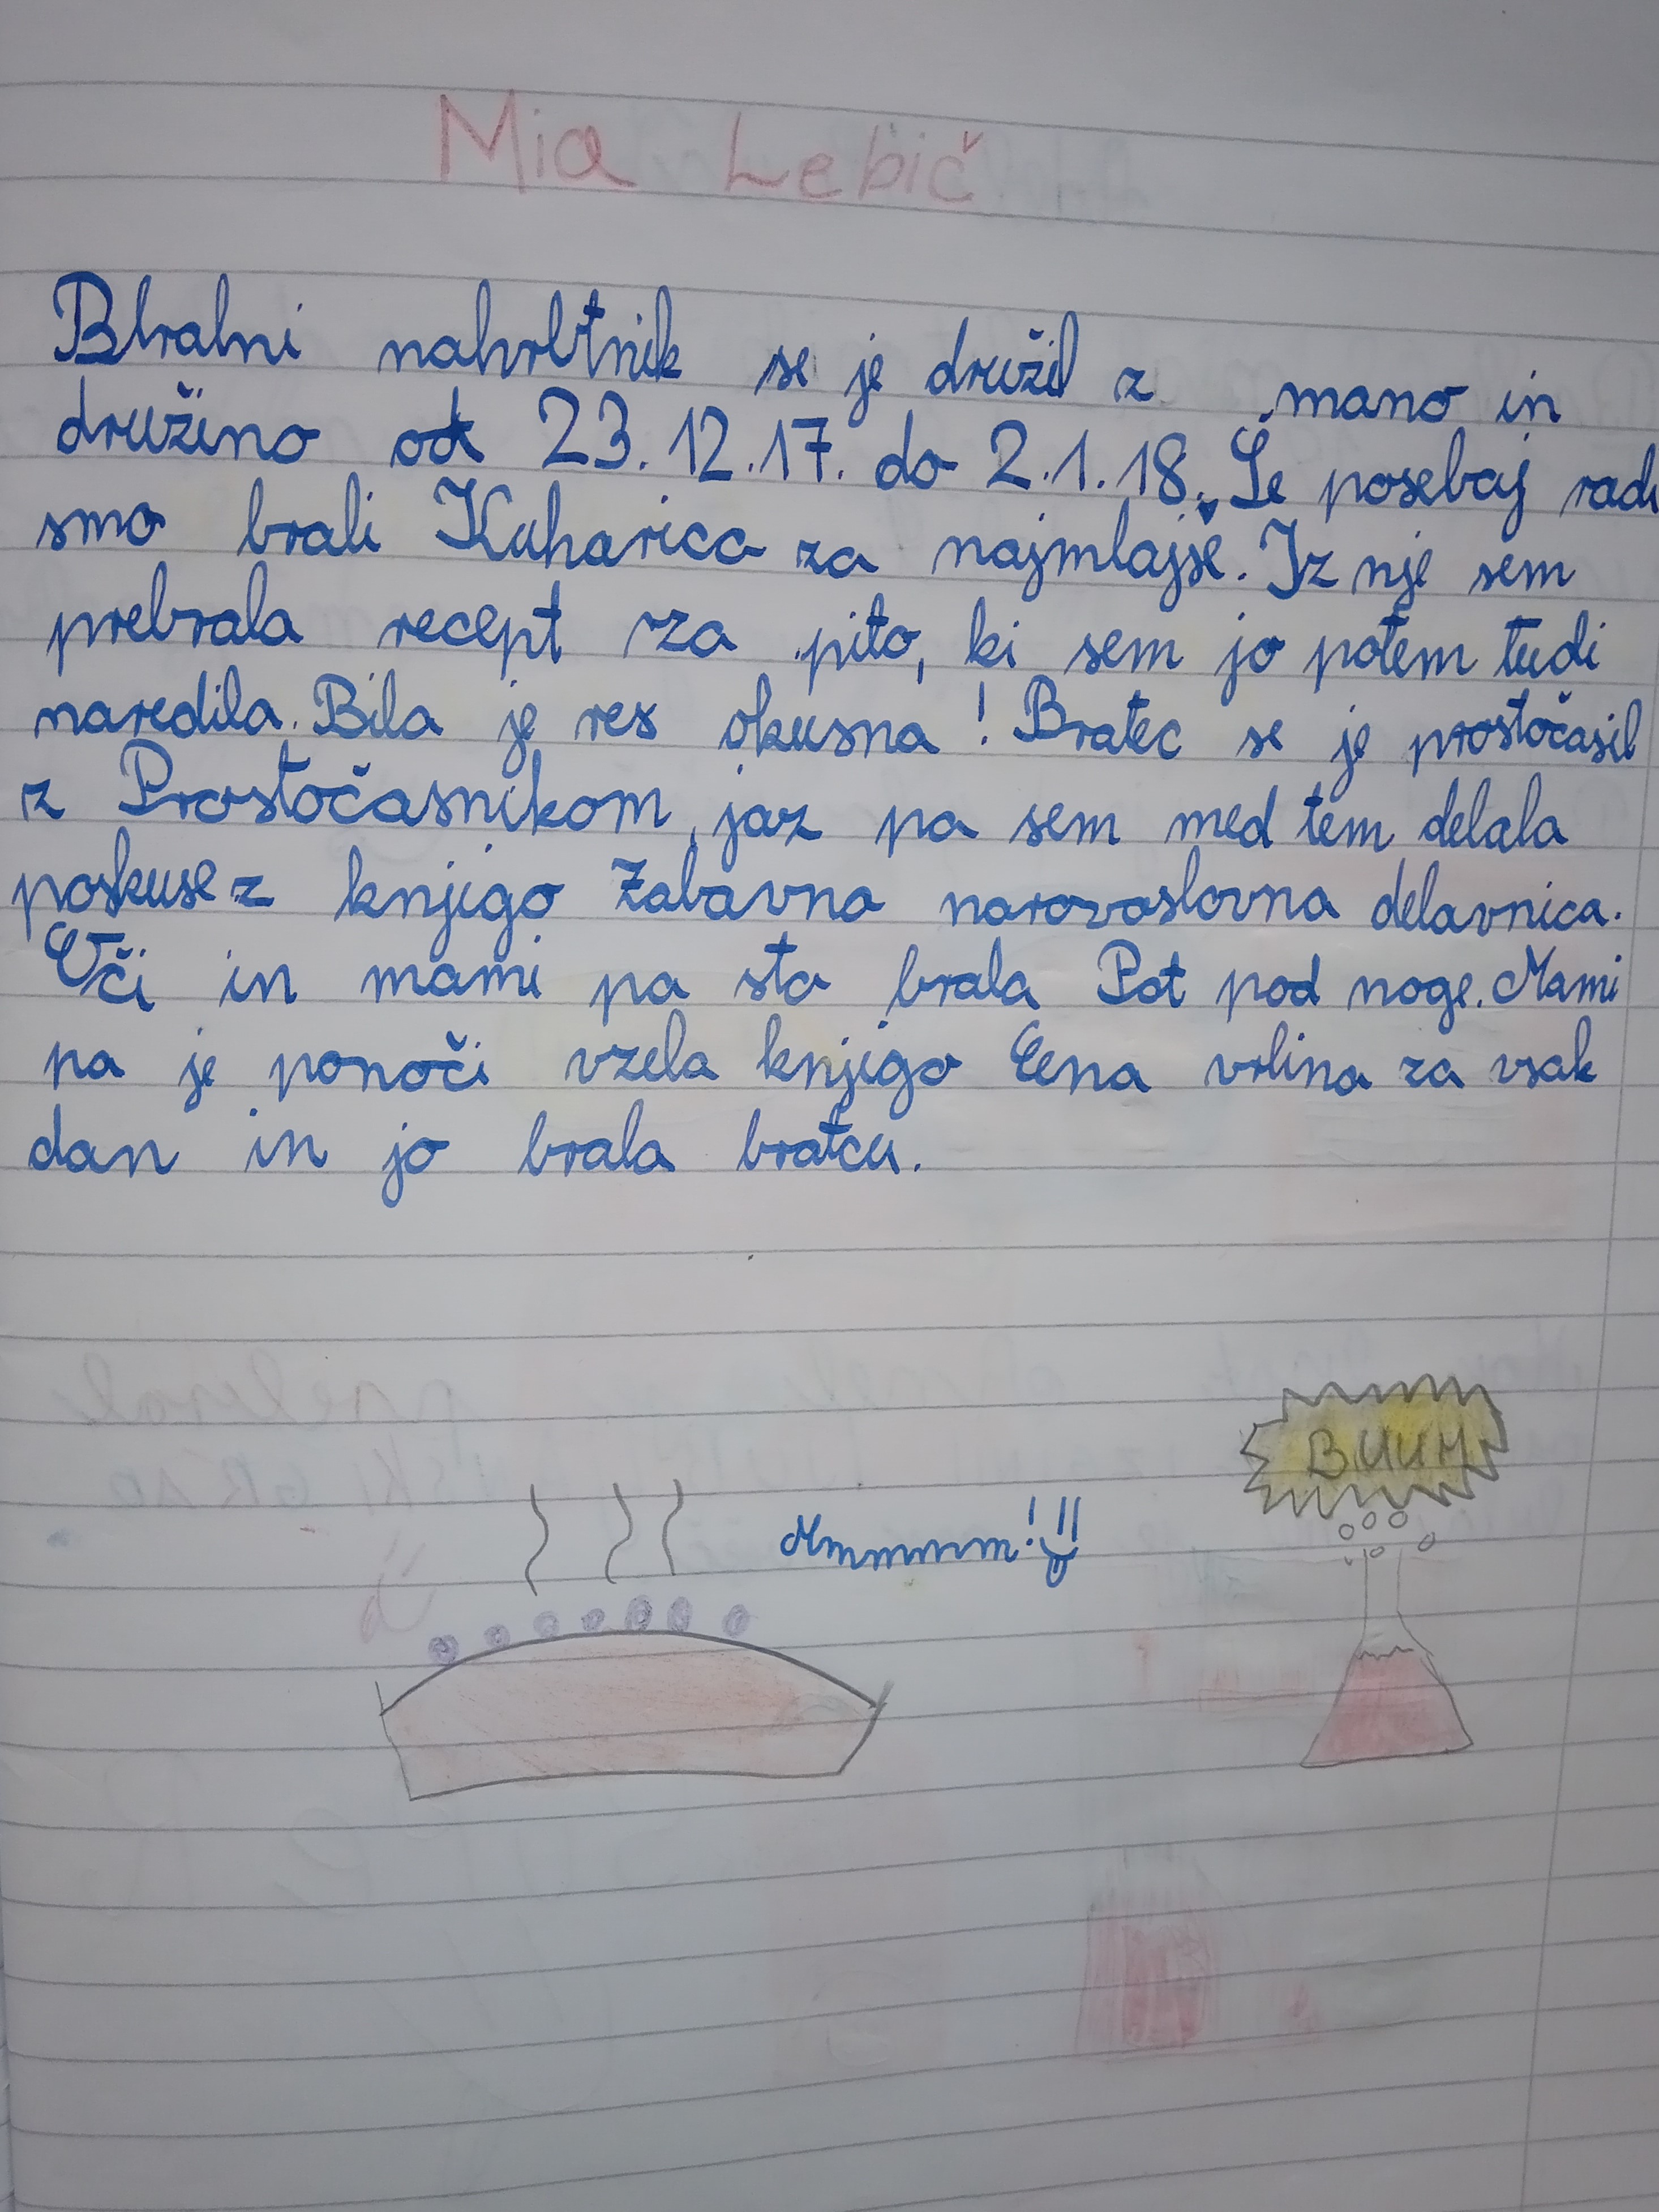 Mia Lebič
Bralni nahrbtnik se je družil z mano in
družino od 23.12.17. do 2.1.18. Še posebaj radi
smo brali Kuharica za najmlajše. Iz nje sem
prebrala recept za pito, ki sem jo potem tudi
naredila. Bila je res okusna! Bratec se je prostočasil
z Prostočasnikom, jaz pa sem med tem delala
poskuse z knjigo Zabavna narovoslovna delavnica.
Oči in mami pa sta brala Pot pod noge. Mami
pa je ponoči vzela knjigo Eena vrlina za vsak
dan in jo brala bratcu.
BUUM
Mmmmm!!!